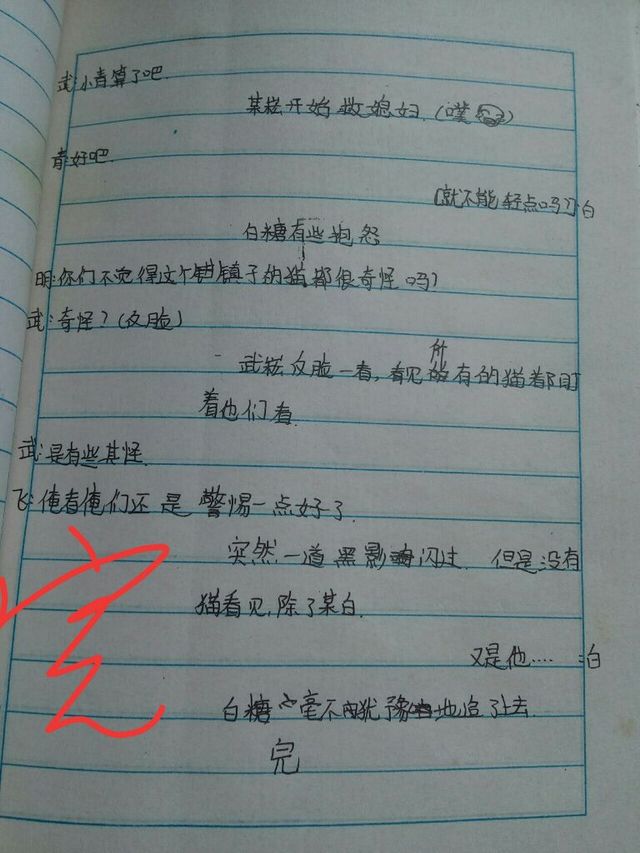 武:小青算了吧.
某崧开始救媳妇.(噗)
青:好吧.
[就不能轻点吗?]:白
白糖有些抱怨
明:你们不觉得这个镇子的猫都很奇怪吗?
武:奇怪?(反脸)
武崧反脸一看,看见所有的猫都盯
着他们看.
武:是有些其怪.
飞:俺看俺们还是警惕一点好了.
突然一道黑影闪过.但是没有
猫看见,除了某白.
又是他....:白
白糖毫不犹豫地追了上去.
完
完